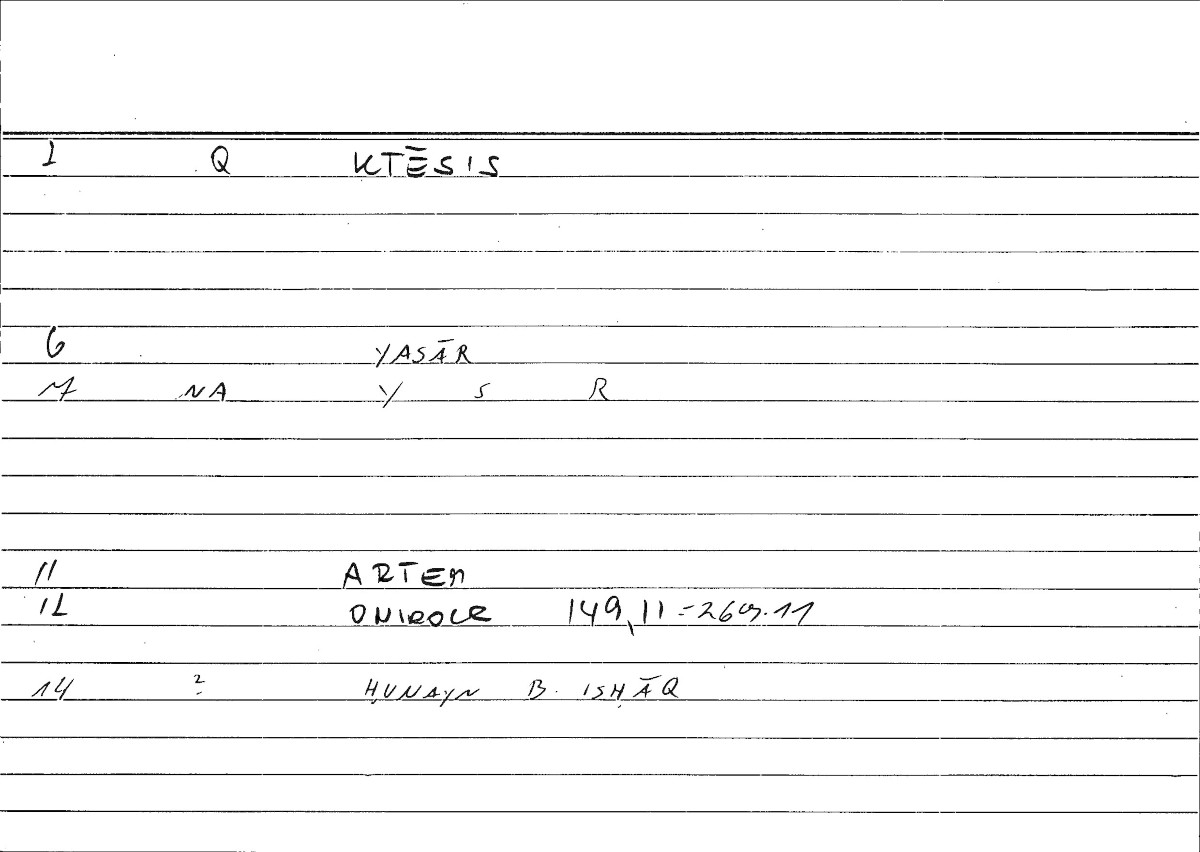 1 Q KTĒSIS
6 YASĀR
7 NA Y S R
11 ARTEM
12 ONIROCR 149,11 = 269.11
14 ? ḤUNAYN B. ISḤĀQ